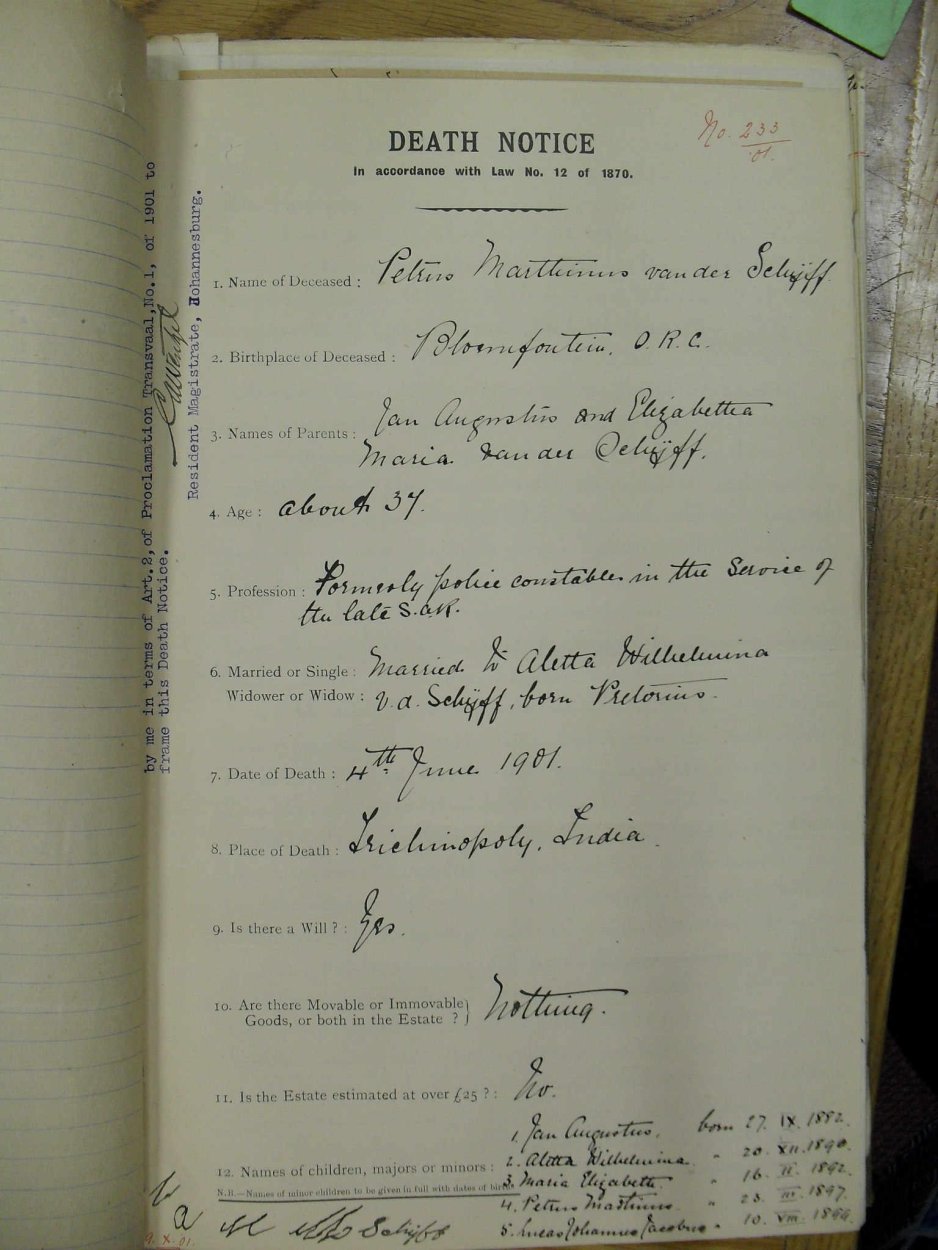 DEATH NOTICE
In accordance with Law No. 12 of 1870.
No. 233
01.
1. Name of Deceased : Petrus Marthinus van der Schijff
2. Birthplace of Deceased : Bloemfontein, O.R.C.
3. Names of Parents : Jan Augustus and Elizabetha
Maria van der Schijff.
4. Age : about 37.
5. Profession : Formerly police constable in the Service of
the late S.A.R.
6. Married or Single : Married to Aletta Wilhelmina
Widower or Widow : v.d. Schijff, born Pretorius.
7. Date of Death : 4th June 1901.
8. Place of Death : Trichinopoly, India.
9. Is there a Will ? : Yes.
10. Are there Movable or Immovable
Goods, or both in the Estate ? } Nothing.
11. Is the Estate estimated at over £25 ? : No.
12. Names of children, majors or minors :
N.B.—Names of minor children to be given in full with dates of birth.
1. Jan Augustus, born 27. IX. 1882.
2. Aletta Wilhelmina " 20. XII. 1890.
3. Maria Elizabeth " 16. II. 1892.
4. Petrus Martinus " 23. III. 1897.
5. Lucas Johannes Jacobus " 10. VIII.
Schijff
by me in terms of Art.2, of Proclamation Transvaal, No.1, of 1901 to
frame this Death Notice.
Resident Magistrate, Johannesburg.